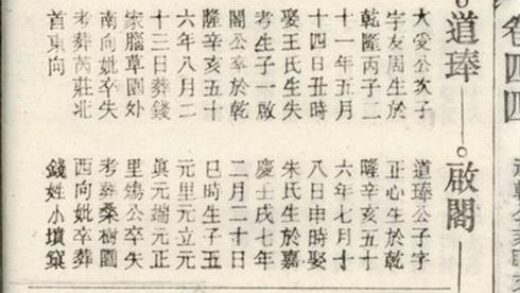 卷四四
道琫
大愛公次子
字友周生於
乾隆丙子二
十一年五月
十四日丑時
娶王氏生失
考生子一啟
閣公卒於乾
隆辛亥五十
六年八月二
十三日葬錢
家腦草園外
南向妣卒失
考葬芮莊北
首東向
啟閣
道琫公子字
正心生於乾
隆辛亥五十
六年七月十
八日申時娶
朱氏生於嘉
慶壬戌七年
二月二十日
巳時生子五
元里元立元
眞元端元正
里殤公卒失
考葬桑樹園
西向妣卒葬
錢姓小墳窠